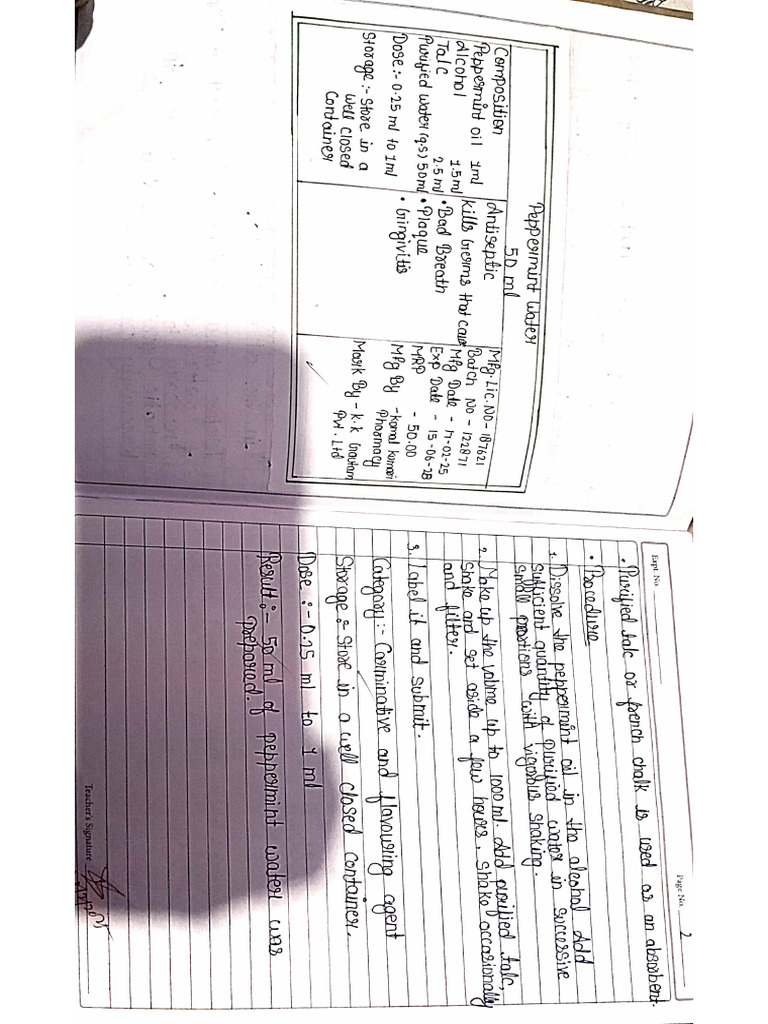 Peppermint Water
50 ml
Composition
Peppermint oil 1ml
Alcohol 1.5ml
Talc 2.5 ml
Purified water (q.s) 50ml
Dose:- 0.25 ml to 1ml
Storage:- Store in a
well closed
Container
Antiseptic
kills Germs that cause
• Bad Breath
• Plaque
• Gingivitis
Mfg. Lic. No - 187621
Batch No - 122871
Mfg Date - 17-02-25
Exp Date - 15-06-28
MRP - 50.00
Mfg By - Komal kumari
Pharmacy
Mark By - K.K Gautam
Pvt. Ltd
Expt. No
Page No. 2
• Purified talc or french chalk is used as an absorbent.
• Procedure
1. Dissolve the peppermint oil in the alcohol Add
sufficient quantity of purified water in successive
small portions with vigorous shaking.
2. Make up the volume up to 1000 ml. Add purified talc,
Shake and set aside a few hours, shake occasionally
and filter.
3. Label it and submit.
Category:- Carminative and flavouring agent
Storage :- Store in a well closed container.
Dose :- 0.25 ml to 1 ml
Result:- 50 ml of peppermint water was
prepared.
Teacher's Signature